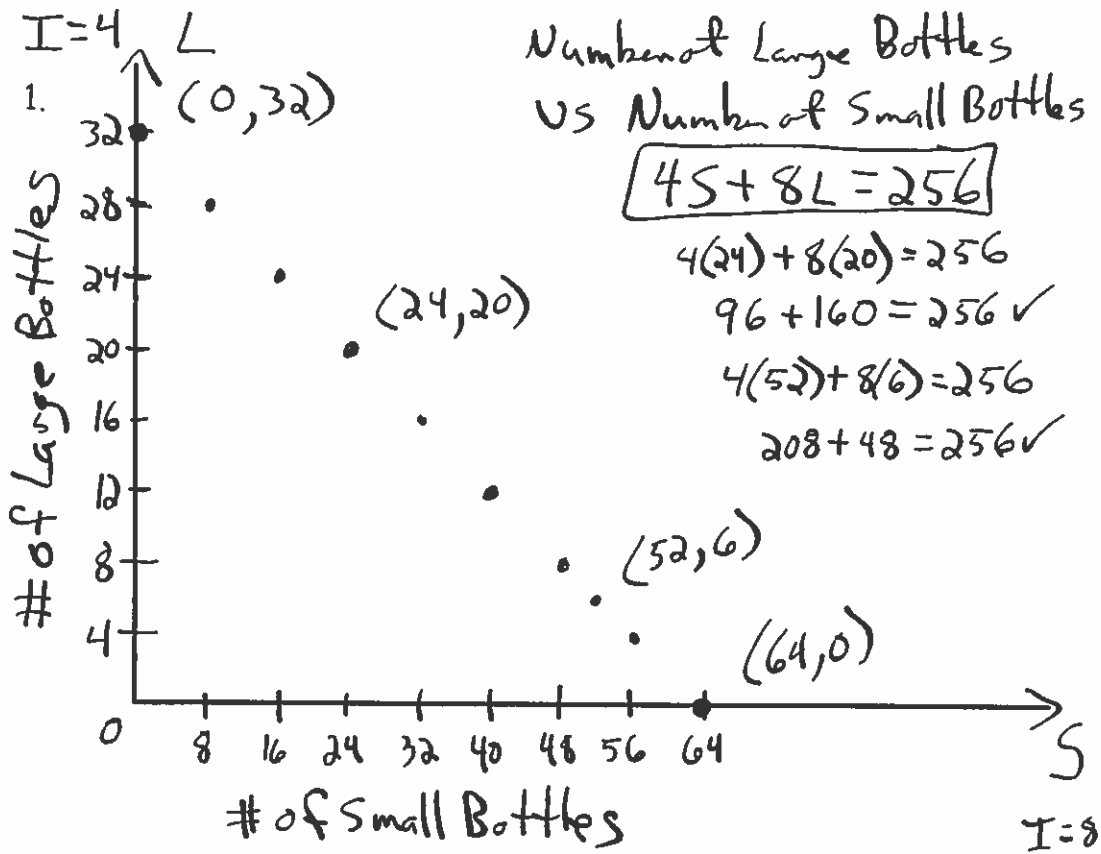 I=4 L
1.
Number of Large Bottles
vs Number of Small Bottles
4S + 8L = 256
4(24) + 8(20) = 256
96 + 160 = 256 ✓
4(52) + 8(6) = 256
208 + 48 = 256 ✓
(0,32)
(24,20)
(52,6)
(64,0)
# of Large Bottles
32
28
24
20
16
12
8
4
0
8 16 24 32 40 48 56 64
S
# of Small Bottles
I=8